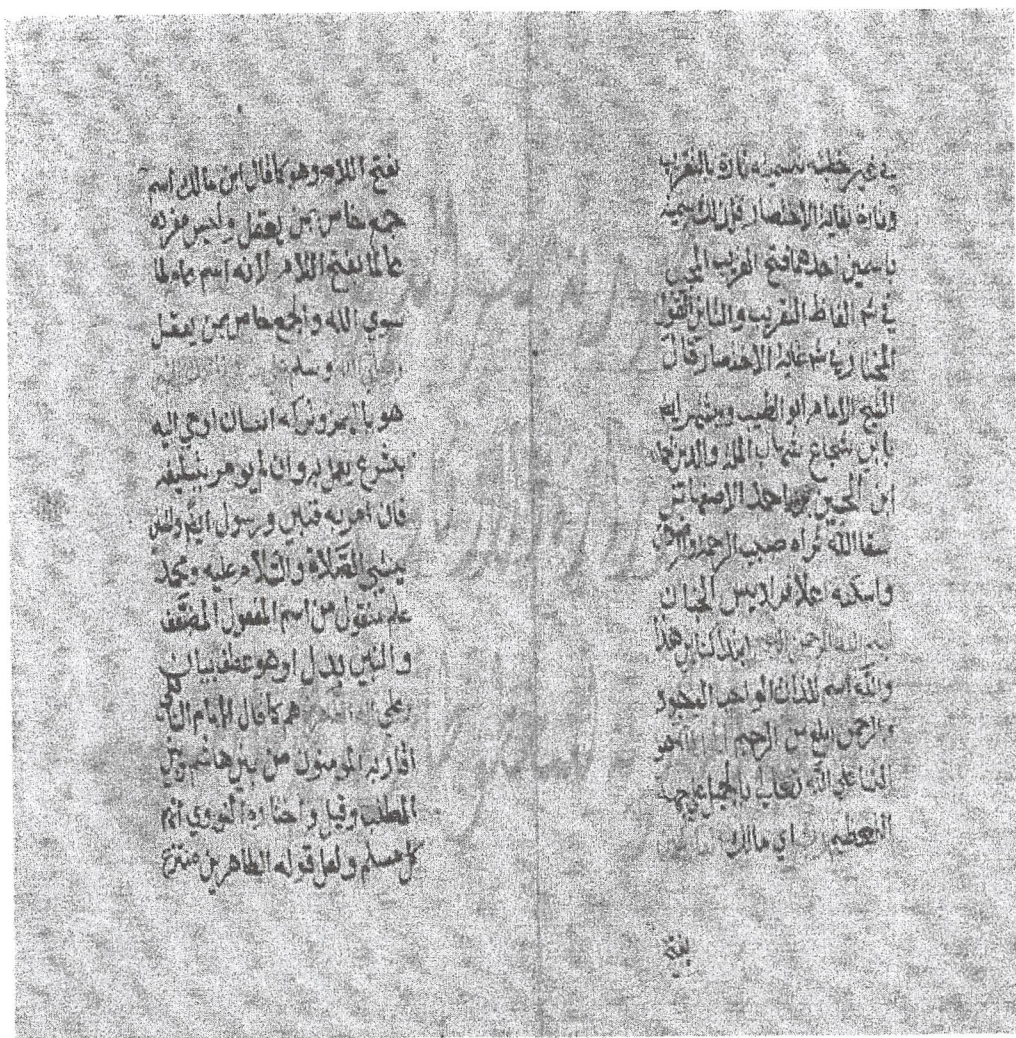 في غير خطبه تسميته تارة بالتقريب
وتارة بغاية الاختصار فلذلك سميته
باسمين احدهما فتح القريب المجيب
في شرح الفاظ التقريب والثاني القول
المختار في شرح غاية الاختصار قال
الشيخ الامام ابو الطيب ويشتهر ايضا
بابن شجاع شهاب الملة والدين احمد
ابن الحسين بن احمد الاصفهاني
سقا الله ثراه صبيب الرحمة والرضوان
واسكنه اعلا فراديس الجنان
بسم الله الرحمن الرحيم ابتدا كتابي هذا
والله اسم للذات الواجب الوجود
والرحمن ابلغ من الرحيم هو
الثنا علي الله تعالى بالجميل علي جهة
التعظيم رب اي مالك
بفتح
بفتح اللام وهو كما قال ابن مالك اسم
جمع خاص بمن يعقل وليس مفرده
عالما بفتح اللام لانه اسم عام لما
سوي الله والجمع خاص بمن يعقل
وصلي الله وسلم
هو بالهمز وتركه انسان اوحي اليه
بشرع يعمل به وان لم يومر بتبليغه
فان امر به فنبي ورسول ايضا والمعني
ينشي الصلاة والسلام عليه ومحمد
علم منقول من اسم المفعول المضعف
والنبي بدل او هو عطف بيان
وعلي هم كما قال الامام الشافعي
اقاربه المومنون من بني هاشم وبني
المطلب وقيل واختاره النووي انهم
كل مسلم ولعل قوله الطاهرين منتزع